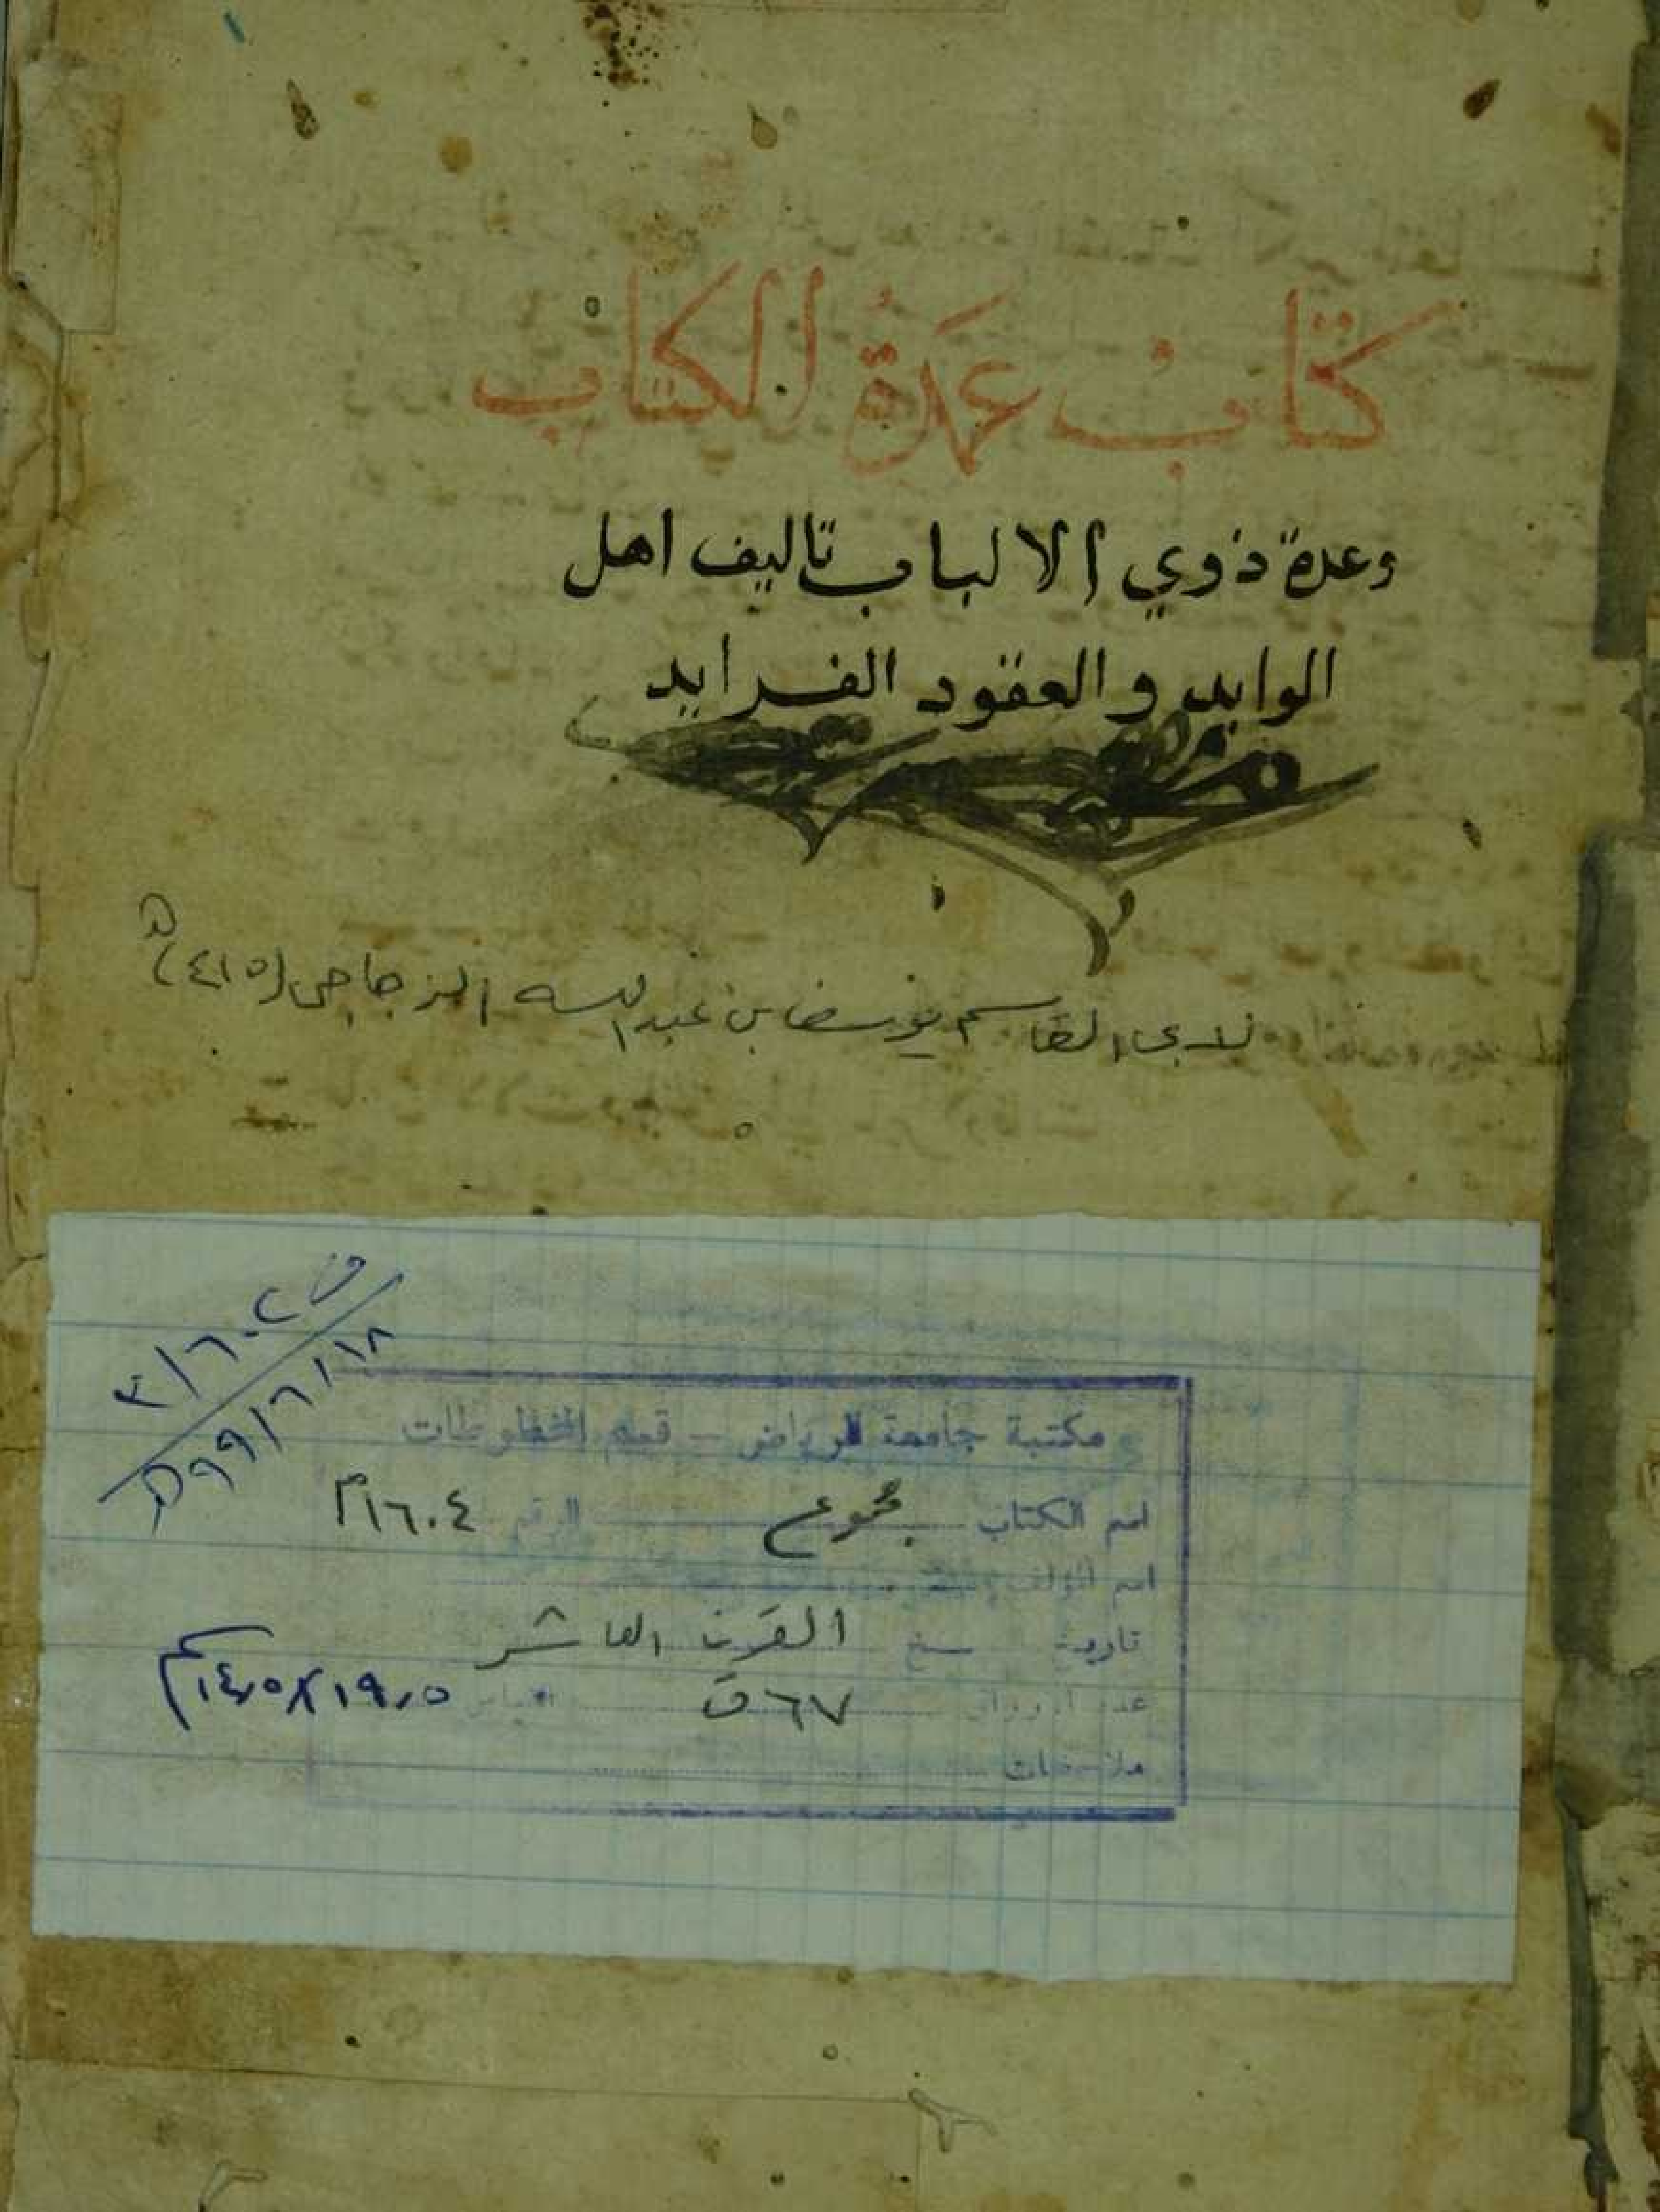 كتاب عمدة الكتاب
وعدة ذوي الالباب تاليف اهل
الوايد والعقود الفرايد
لابى القاسم يوسف بن عبد الله الزجاجى (٤١٥)ه
ف ٣/٦٠٢
٩٩/٦/١٨ه
مكتبة جامعة الرياض - قسم المخطوطات
اسم الكتاب مجموع الرقم ١٦٠٤م
اسم المؤلف
تاريخ نسخ القرن العاشر
عدد اوراق ٦٧ ق القياس ١٩,٥×١٤,٥سم
ملاحظات